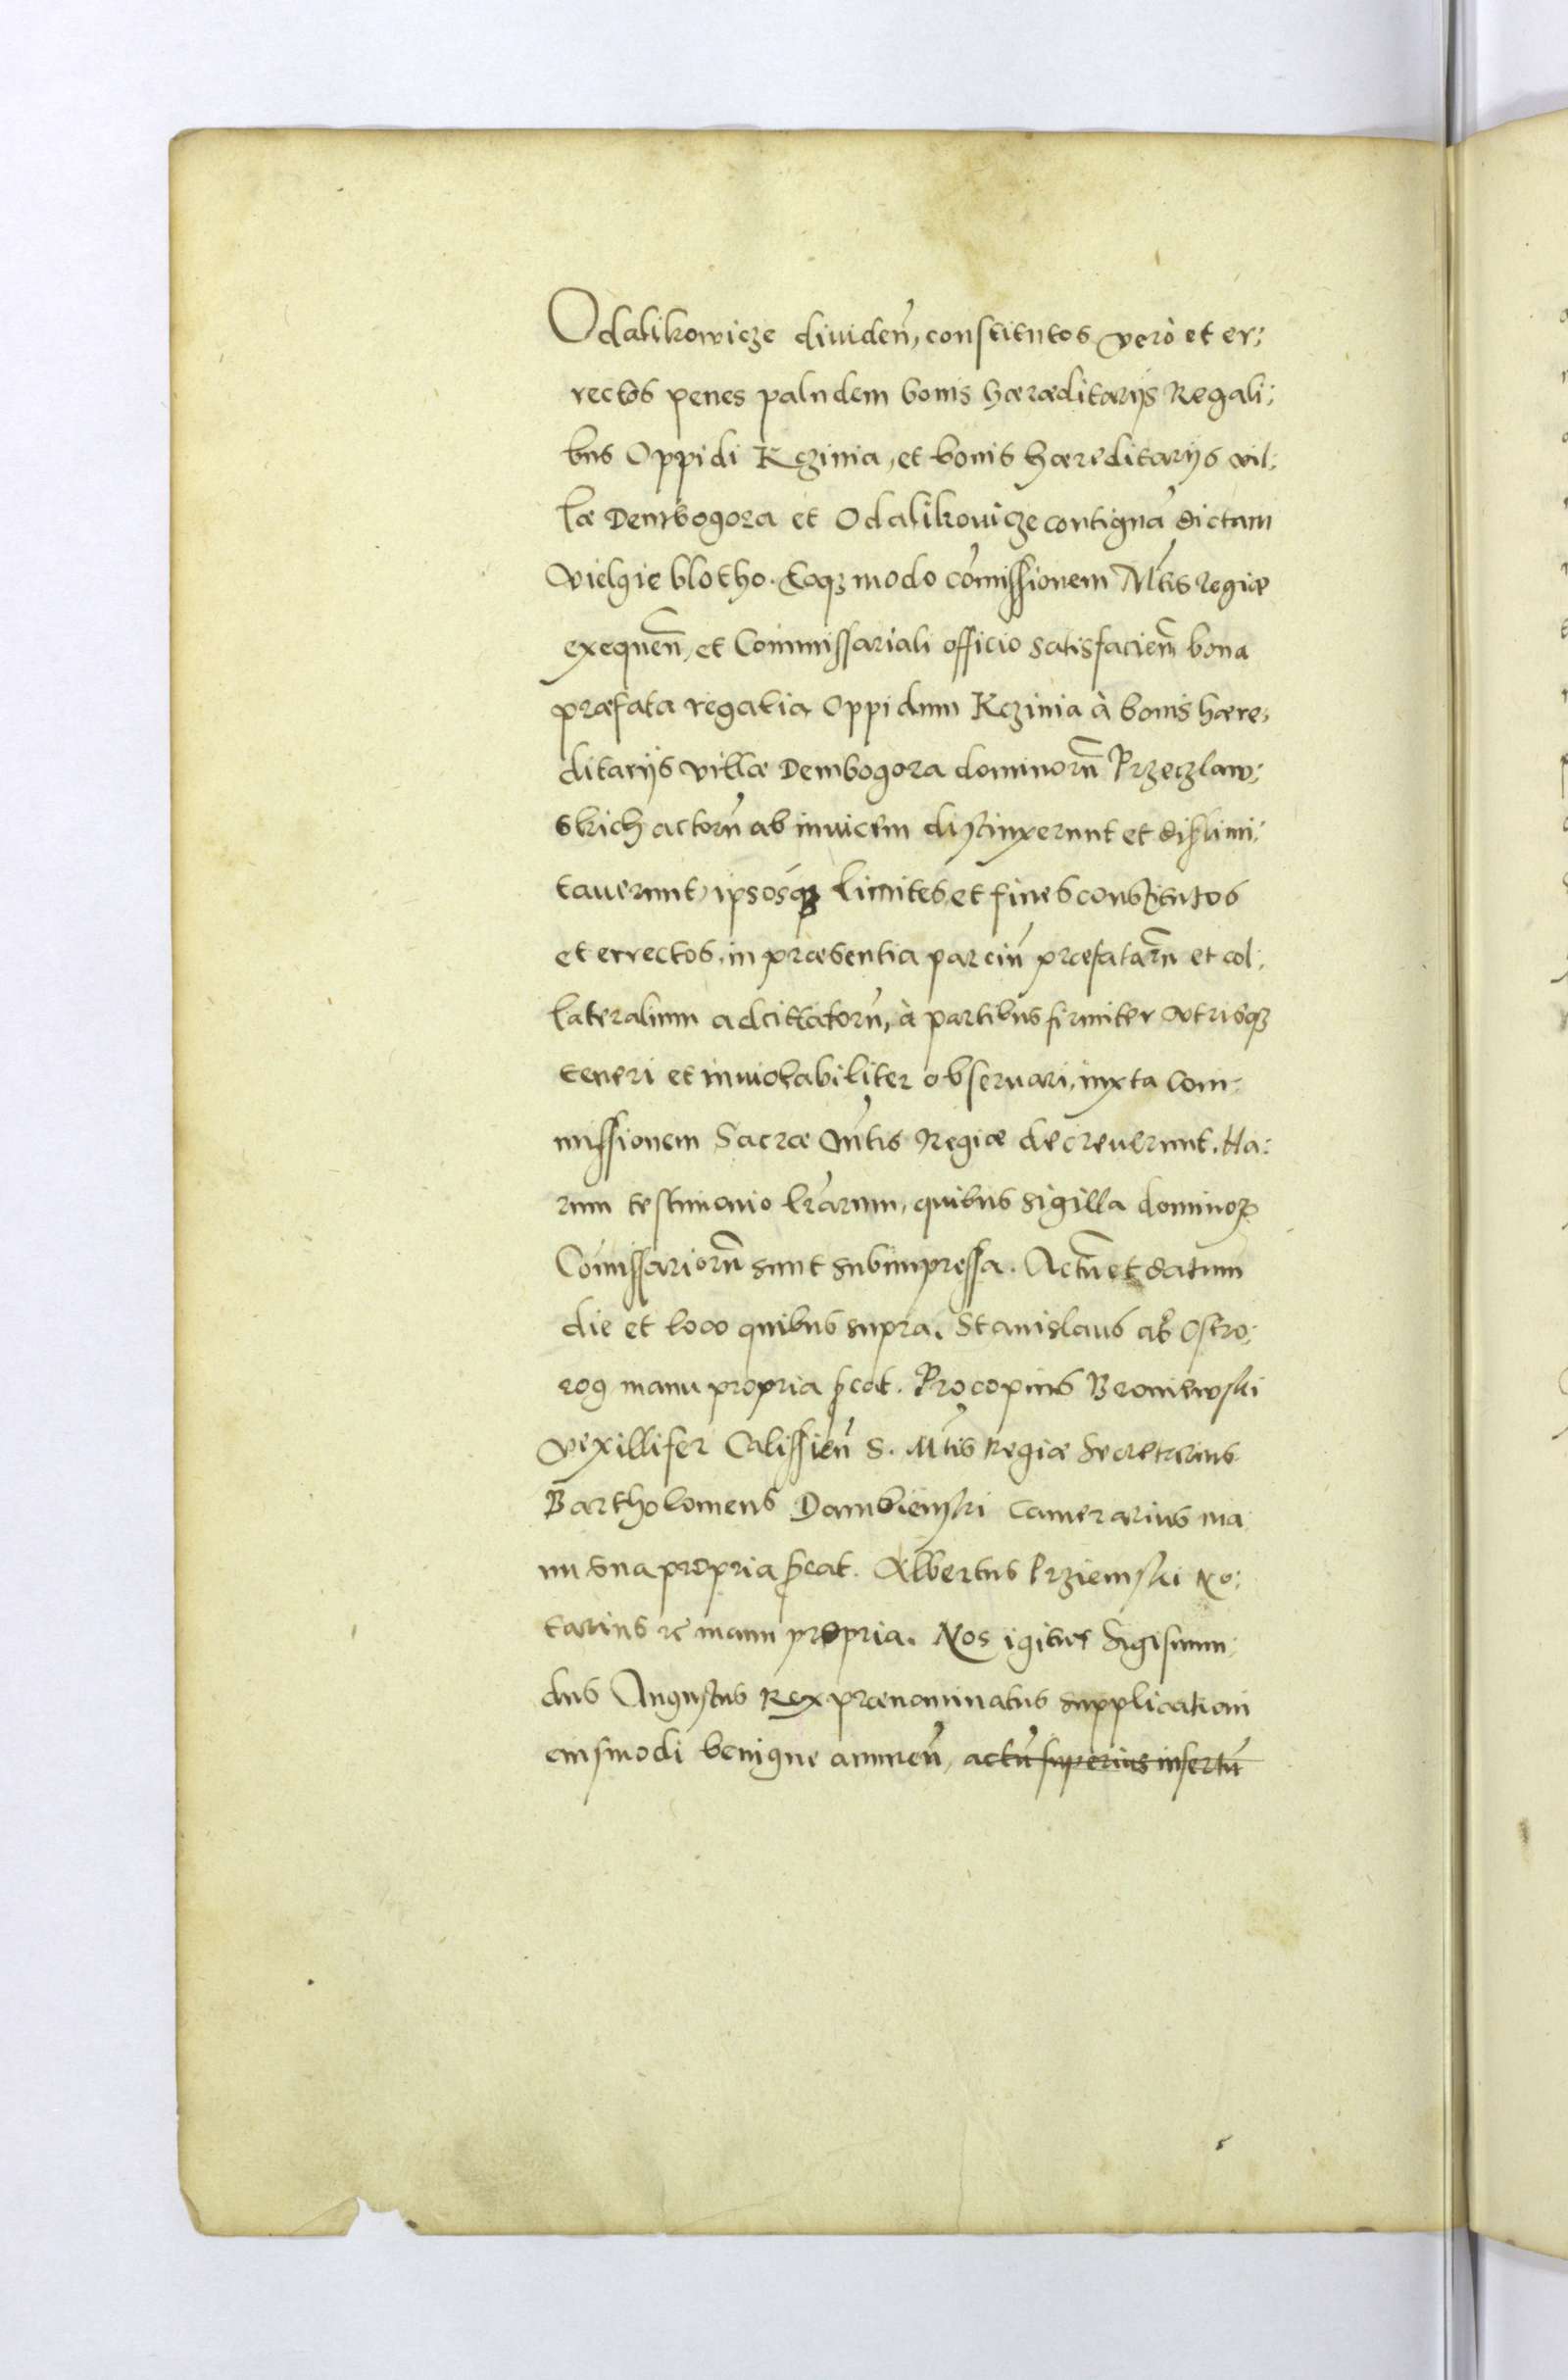 Odalikowicze diuiden̄, constitutos verò et er:
rectos penes paludem bonis hæræditarijs Regali:
bus Oppidi Kczinia, et bonis hæreditarijs vil:
læ Dembogora et Odalikouicze contiguā dictam
Vielgie blotho. Eoq3 modo com̄issionem Mtis Regiæ
exequen̄, et Commissariali officio satisfacien̄ bona
præfata regalia Oppidum Kczinia à bonis hære:
ditarijs villæ Dembogora dominorū Przeczlaw:
skich actorū ab inuicem distinxerunt et dislimi:
tauerunt, ipsosq3 limites et fines constitutos
et errectos, in præsentia parciū præfatarū et col:
lateralium adcittatorū, à partibus firmiter vtrisq3
teneri et inuiolabiliter obseruari, iuxta Com:
missionem Sacræ Mtis Regiæ decreuerunt. Ha:
rum testimonio lr̄arum, quibus sigilla dominoꝝ
Com̄issariorū sunt subimpressa. Actū et datum
die et loco quibus supra. Stanislaus ab Ostro:
rog manu propria sc̄at. Procopius Broniewski
Vexillifer Calissien̄ S. Mtis Regiæ Secretarius
Bartholomeus Dambienski Camerarius ma
nu sua propria sc̄at. Albertus Prziemski No:
tarius rc manu propria. Nos igitur Sigismun:
dus Augustus Rex prænominatus supplicationi
eiusmodi benigne annuen̄, actū superius insertū